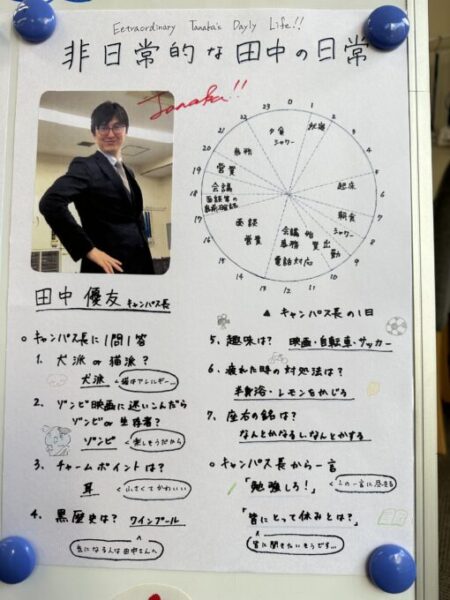 Eetraordinary Tanaka's Dayly Life!!
非日常的な田中の日常
Tanaka!!
0
1
5
6
7
8
9
10
11
12
13
14
15
16
17
18
19
20
21
22
23
夕食
シャワー
就寝
起床
朝食
シャワー
出勤
会議
事務
電話対応
面談
営業
会議
営業
事務
田中 優友 キャンパス長
▲ キャンパス長の1日
○ キャンパス長に1問1答
1. 犬派 or 猫派?
犬派
猫はアレルギー…
2. ゾンビ映画に迷いこんだら
ゾンビ or 生存者?
ゾンビ
楽しそうだから
3. チャームポイントは?
耳
小さくてかわいい
4. 黒歴史は? ワインプール
気になる人は田中さんへ
5. 趣味は? 映画・自転車・サッカー
6. 疲れた時の対処法は?
半身浴・レモンをかじる
7. 座右の銘は?
なんとかなるし、なんとかする
○ キャンパス長から一言
「勉強しろ!」
この一言に尽きる
「皆にとって休みとは?」
皆に聞きたいそうです…